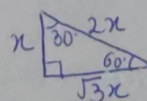 x 30° 2x
60°
√3x